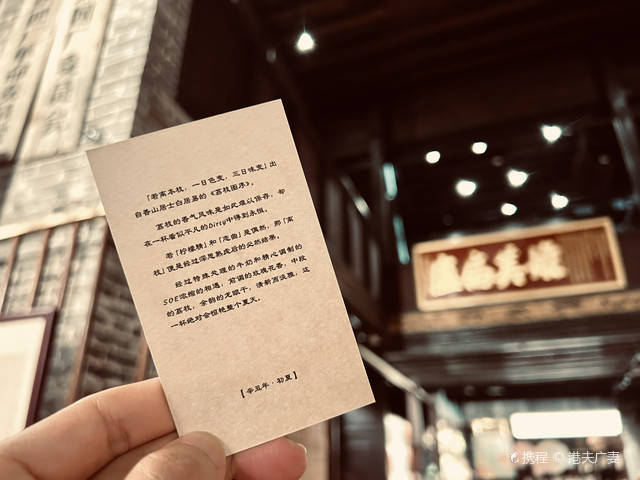 「若离本枝，一日色变，三日味变」出
自香山居士白居易的《荔枝图序》。
荔枝的香气风味是如此难以保存，却
在一杯看似平凡的Dirty中得到永恒。
若「柠檬精」和「恋曲」是偶然，那「离
枝」便是经过深思熟虑后的必然结果。
经过特殊处理的牛奶和精心调制的
SOE浓缩的相遇，前调的玫瑰花香，中段
的荔枝，余韵的龙眼干，清新而淡雅，这
一杯绝对会惊艳整个夏天。
【辛丑年·初夏】
携程 @港夫广妻